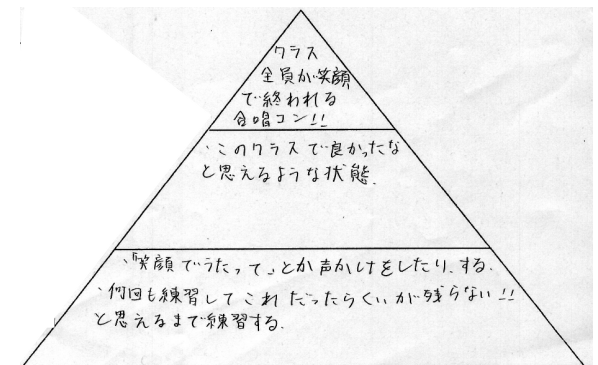 クラス
全員が笑顔
で終われる
合唱コン!!
・このクラスで良かったな
と思えるような状態.
・「笑顔でうたって」とか声かけをしたり、する.
・何回も練習してこれだったらくいが残らない!!
と思えるまで練習する.